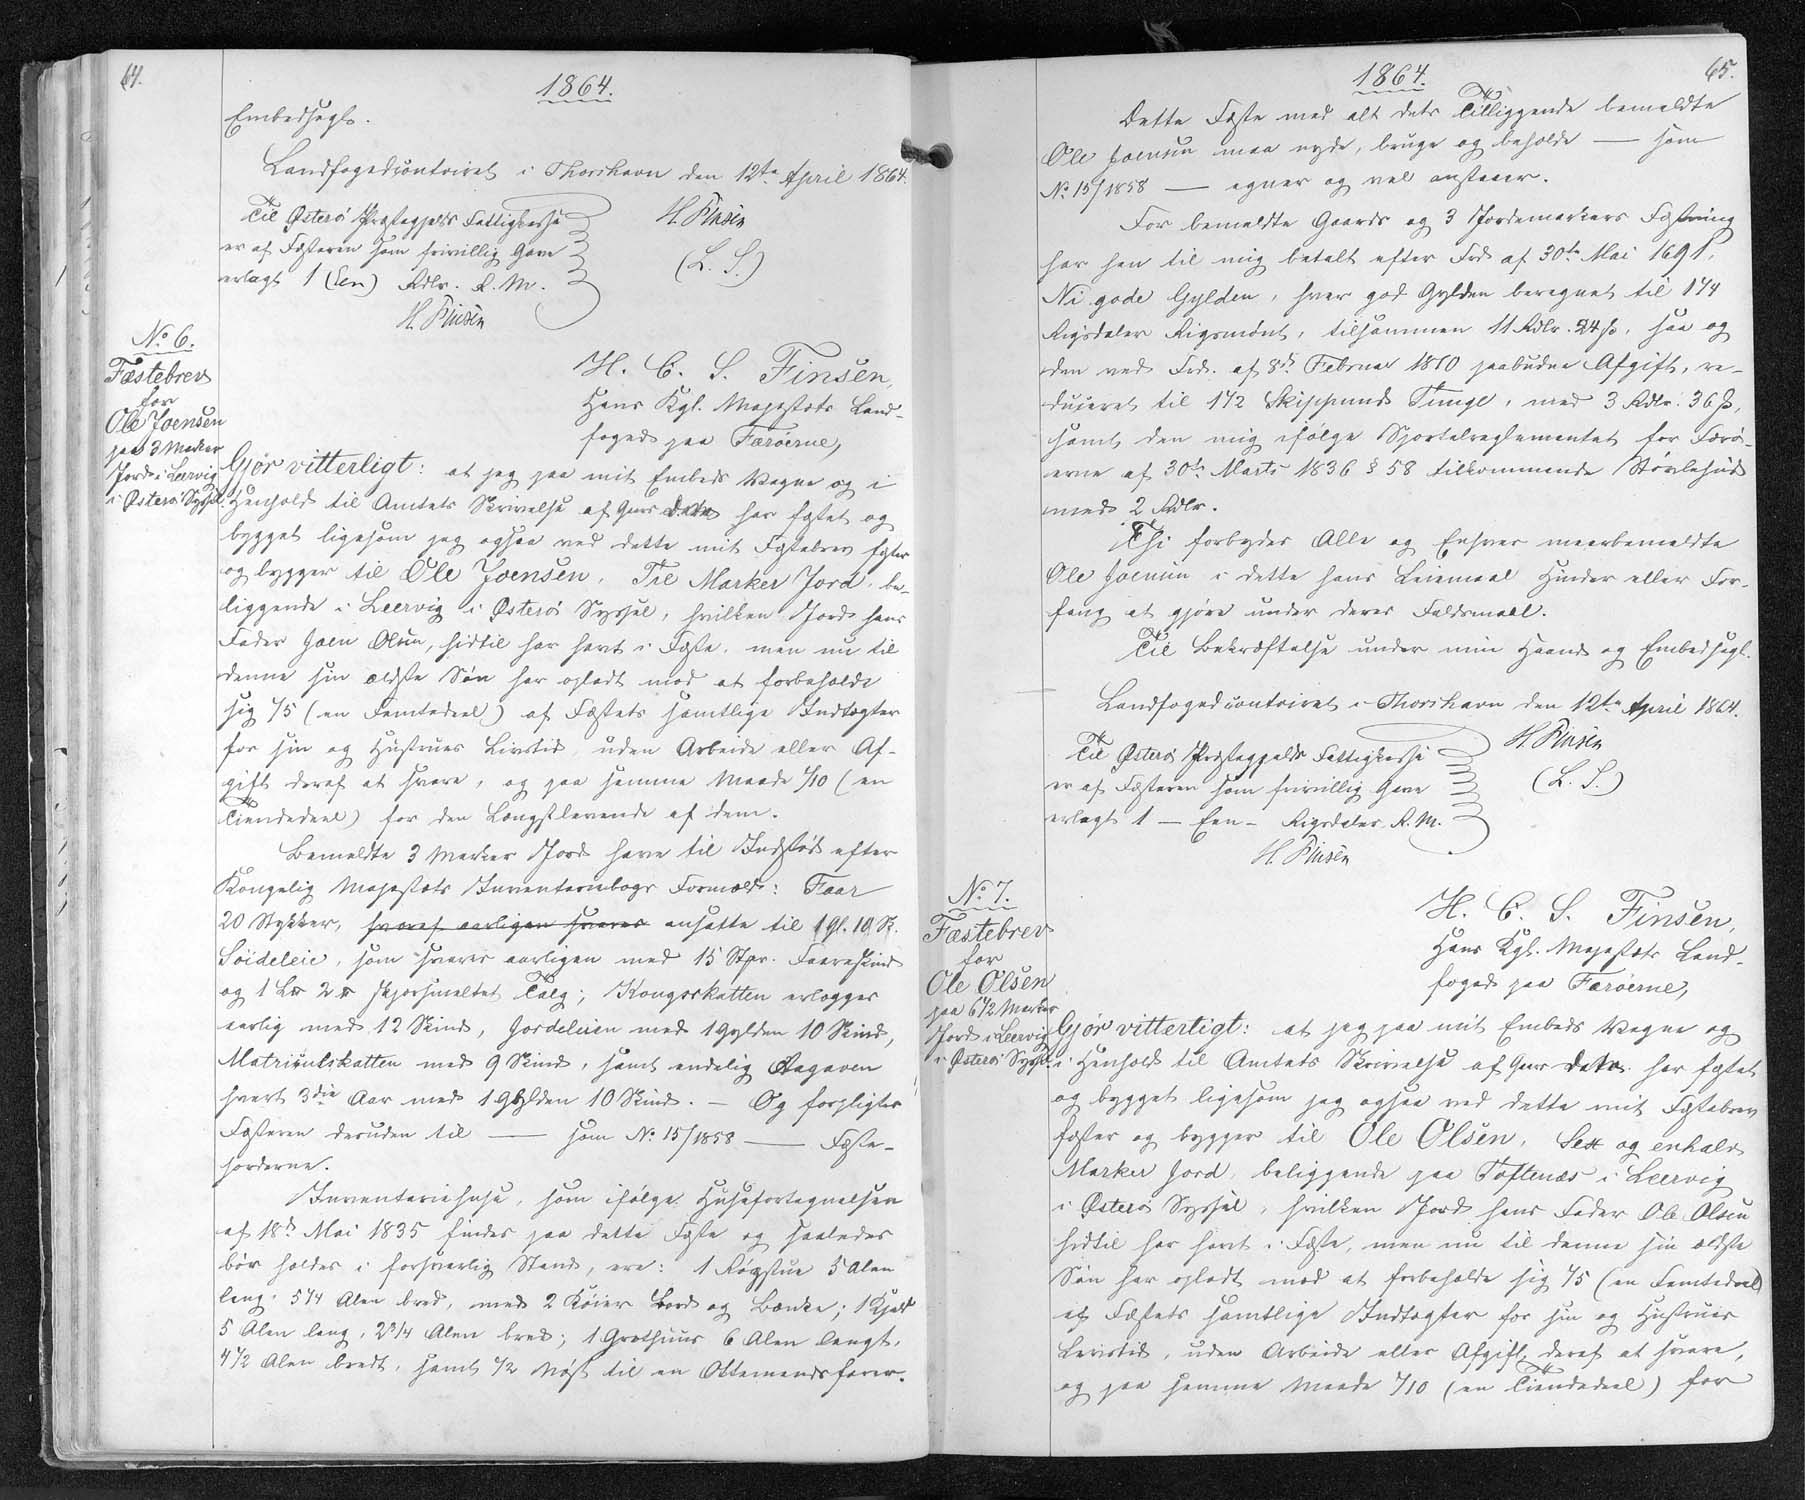 64.
1864.
Embedsegl.
Landfogedcontoiret i Thorshavn den 12te April 1864.
Til Østerø Præstegjelds Fattigkasse
er af Fæsteren som frivillig Gave
erlagt 1 (Een) Rdlr. R. M.
H. Finsen
H. Finsen
(L. S.)
No 6.
Fæstebrev
for
Ole Joensen
paa 3 Marker
Jord i Leervig
i Østerø Syssel.
H. C. S. Finsen,
Hans Kgl. Majestæts Land-
foged paa Færöerne,
Gjør vitterligt: at jeg paa mit Embeds Vegne og i
Henhold til Amtets Skrivelse af Gaars Dato har fæstet og
bygget ligesom jeg ogsaa ved dette mit Fæstebrev fæster
og bygger til Ole Joensen, Tre Marker Jord, be-
liggende i Leervig i Østerø Syssel, hvilken Jord hans
Fader Joen Olsen, hidtil har havt i Fæste, men nu til
denne sin ældste Søn har opladt mod at forbeholde
sig 1/5 (en Femtedeel) af Fæstets samtlige Indtægter
for sin og Hustrues Livstid, uden Arbeide eller Af-
gift deraf at svare, og paa samme Maade 1/10 (en
Tiendedeel) for den Længstlevende af dem.
Bemeldte 3 Marker Jord have til Indstød efter
Kongelig Majestæts Inventariebogs Formeld: Faar
20 Stykker, hvoraf aarligen svares ansatte til 1 Gl. 10 Sk.
Söideleie, som svares aarligen med 15 Stkr. Faareskind
og 1 L℔ 2 ℔ skjærsmeltet Talg; Kongsskatten erlægges
aarlig med 12 Skind, Jordeleien med 1 Gylden 10 Skind,
Matriculskatten med 9 Skind, samt endelig Tagaven
hvert 3die Aar med 1 Gylden 10 Skind. — Og forpligtes
Fæsteren desuden til — som No 15/1858 — Fæste-
jorderne.
Inventariehuse, som ifølge Husefortegnelsen
af 18de Mai 1835 findes paa dette Fæste og saaledes
bör holdes i forsvarlig Stand, ere: 1 Røgstue 5 Alen
lang, 5 1/4 Alen bred, med 2 Køier Bord og Bænke; 1 Hjald
5 Alen lang, 2 3/4 Alen bred; 1 Grothuus 6 Alen langt,
4 1/2 Alen bredt, samt 1/2 Nöst til en Ottemandsfarer.
65.
1864.
Dette Fæste med alt dets Tilliggende bemeldte
Ole Joensen maa nyde, bruge og beholde — som
No 15/1858 — egner og vel anstaaer.
For bemeldte Gaards og 3 Jordemarkers Fæstning
har han til mig betalt efter Frd. af 30te Mai 1691,
Ni gode Gylden, hver god Gylden beregnet til 1 1/4
Rigsdaler Rigsmønt, tilsammen 11 Rdlr. 24 ß, saa og
den ved Frd. af 8de Februar 1810 paabudne Afgift, re-
duceret til 1 1/2 Skippund Tunge, med 3 Rdlr. 36 ß,
samt den mig ifølge Sportelreglementet for Færö-
erne af 30te Marts 1836 § 58 tilkommende Støvlehud
med 2 Rdlr.
Thi forbydes Alle og Enhver meerbemeldte
Ole Joensen i dette hans Leiemaal Hinder eller For-
fang at gjöre under deres Faldsmaal.
Til Bekræftelse under min Haand og Embedsegl.
Landfogedcontoiret i Thorshavn den 12te April 1864.
Til Østerø Præstegjelds Fattigkasse
er af Fæsteren som frivillig Gave
erlagt 1 — Een — Rigsdaler R. M.
H. Finsen
H. Finsen
(L. S.)
No 7.
Fæstebrev
for
Ole Olsen
paa 6 1/2 Marker
Jord i Leervig
i Østerø Syssel.
H. C. S. Finsen,
Hans Kgl. Majestæts Land-
foged paa Færöerne,
Gjør vitterligt: at jeg paa mit Embeds Vegne og
i Henhold til Amtets Skrivelse af Gaars Dato har fæstet
og bygget ligesom jeg ogsaa ved dette mit Fæstebrev
fæster og bygger til Ole Olsen, Sex og enhalv
Marker Jord, beliggende paa Toftenæs i Leervig
i Østerø Syssel, hvilken Jord hans Fader Ole Olsen
hidtil har havt i Fæste, men nu til denne sin ældste
Søn har opladt mod at forbeholde sig 1/5 (en Femtedeel)
af Fæstets samtlige Indtægter for sin og Hustrues
Levetid, uden Arbeide eller Afgift deraf at svare,
og paa samme Maade 1/10 (en Tiendedeel) for